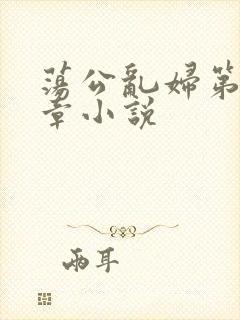 蕩公亂婦第
章小說
兩耳